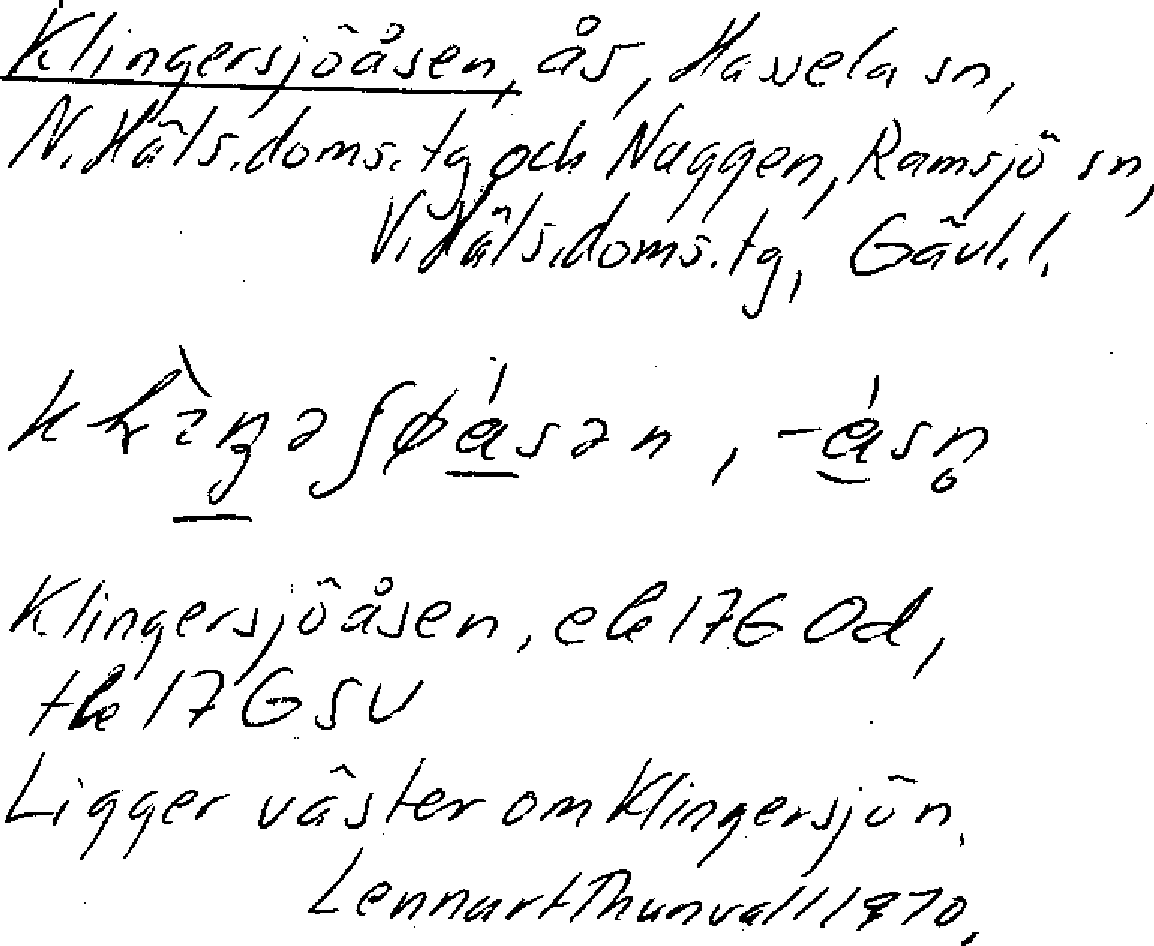 Klingersjöåsen, ås, Hassela sn,
N. Häls. doms. tg och Naggen, Ramsjö sn,
V. Häls. doms. tg, Gävl. l.
-ásn̥
Klingersjöåsen, ek 17G Od,
tk 17 G SV
Ligger väster om Klingersjön.
Lennart Thunvall 1970.